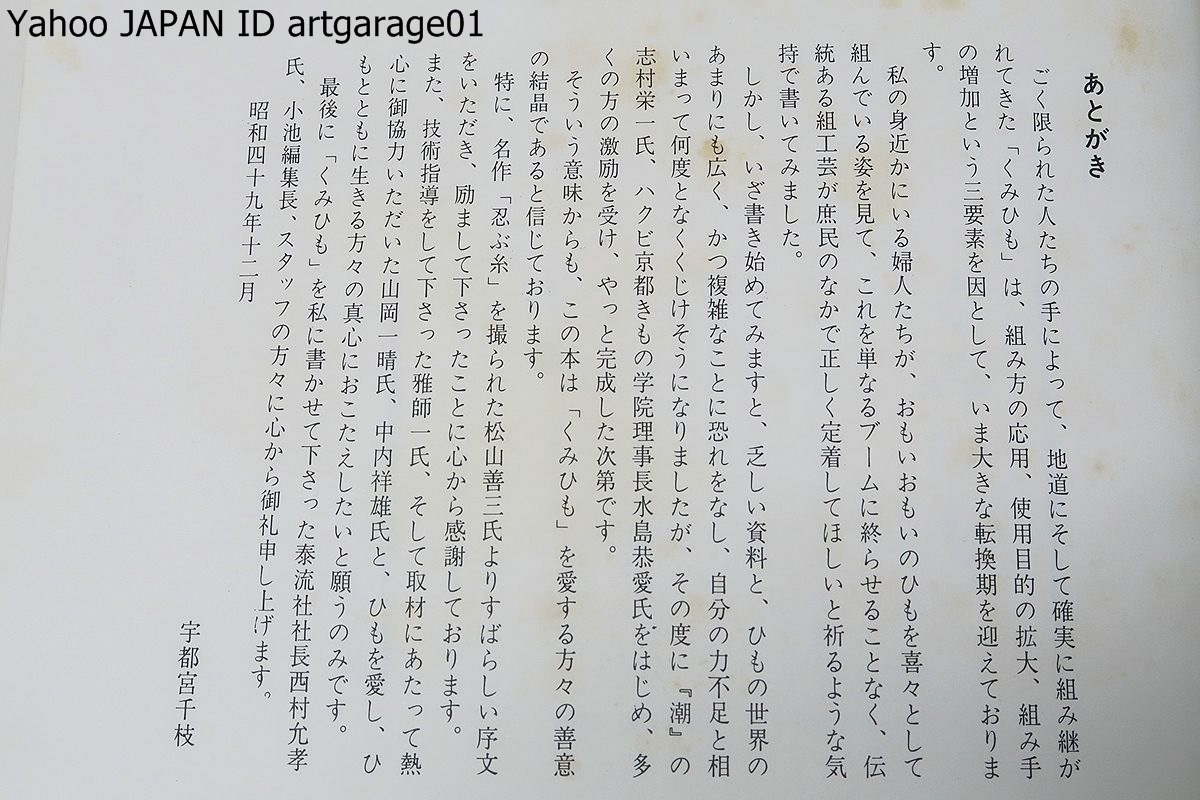 Yahoo JAPAN ID artgarage01
あとがき
ごく限られた人たちの手によって、地道にそして確実に組み継が
れてきた「くみひも」は、組み方の応用、使用目的の拡大、組み手
の増加という三要素を因として、いま大きな転換期を迎えておりま
す。
私の身近かにいる婦人たちが、おもいおもいのひもを喜々として
組んでいる姿を見て、これを単なるブームに終らせることなく、伝
統ある組工芸が庶民のなかで正しく定着してほしいと祈るような気
持で書いてみました。
しかし、いざ書き始めてみますと、乏しい資料と、ひもの世界の
あまりにも広く、かつ複雑なことに恐れをなし、自分の力不足と相
いまって何度となくくじけそうになりましたが、その度に『潮』の
志村栄一氏、ハクビ京都きもの学院理事長水島恭愛氏をはじめ、多
くの方の激励を受け、やっと完成した次第です。
そういう意味からも、この本は「くみひも」を愛する方々の善意
の結晶であると信じております。
特に、名作「忍ぶ糸」を撮られた松山善三氏よりすばらしい序文
をいただき、励まして下さったことに心から感謝しております。
また、技術指導をして下さった雅師一氏、そして取材にあたって熱
心に御協力いただいた山岡一晴氏、中内祥雄氏と、ひもを愛し、ひ
もとともに生きる方々の真心におこたえしたいと願うのみです。
最後に「くみひも」を私に書かせて下さった泰流社社長西村允孝
氏、小池編集長、スタッフの方々に心から御礼申し上げます。
昭和四十九年十二月
宇都宮千枝